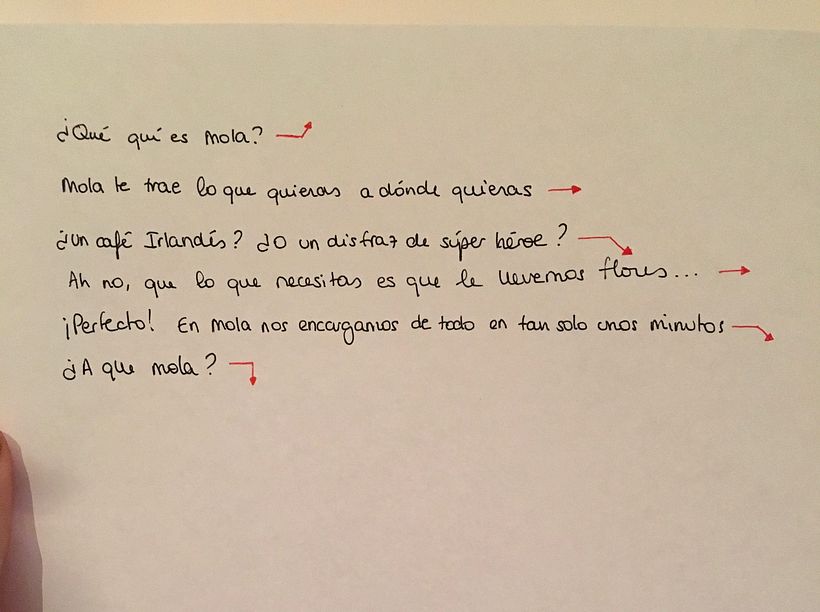 ¿Qué qué es Mola?
Mola te trae lo que quieras a dónde quieras
¿Un café Irlandés? ¿O un disfraz de súper héroe?
Ah no, que lo que necesitas es que le llevemos flores...
¡Perfecto! En Mola nos encargamos de todo en tan solo unos minutos
¿A que mola?